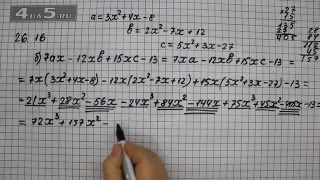 GDZ.RU
a=3x²+4x-8
26.16
b=2x²-7x+12
c=5x²+3x-27
б) 7ax-12xb+15xc-13=7xa-12xb+15xc-13=
=7x(3x²+4x-8)-12x(2x²-7x+12)+15x(5x²+3x-27)-13=
=21x³+28x²-56x-24x³+84x²-144x+75x³+45x²-405x-13=
=72x³+157x²-
27
15
135
27
405